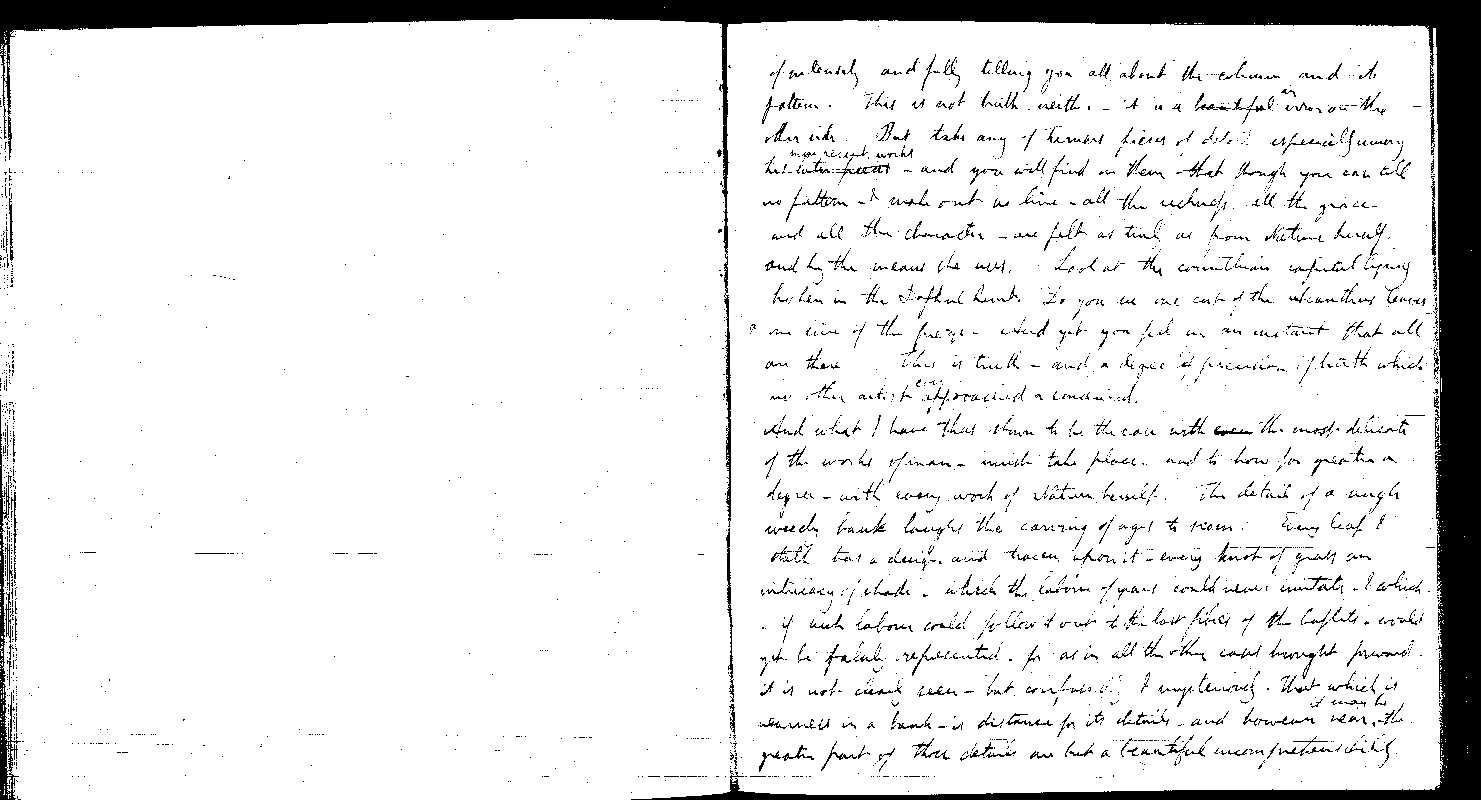 of intensely and fully telling you all about the column and its
pattern. This is not truth neith. - it is a beautiful an error on the
other side. But take any of Turners pieces of detail especially among
more recent works
his later pieces - and you will find in them - that though you can tell
no pattern - & make out no line - all the richness all the grace -
and all the character - are felt as truly as from Nature herself
and by the means she uses. Look at the corinthian capital lying
broken in the Daphne hunt. Do you see one cut of the acanthus leaves
or one line of the frieze - And yet you feel in an instant that all
are there This is truth - and a degree & precision of truth which
no other artist ever approached or conceived.
And what I have thus shown to be the case with even the most delicate
of the works of man - must take place - and to how far greater a
degree - with every work of Nature herself. The details of a rough
weedy bank laughs the carving of ages to scorn: Every leaf &
stalk has a design and tracery upon it - every knot of grass an
intricacy of shade - which the labour of years could never imitate - & which -
- if such labour could follow it out to the last fibres of the leaflets - would
yet be falsely represented - for as in all the other cases brought forward -
it is not clearly seen - but confusedly & mysteriously. That which is
nearness in a bank - is distance for its details - and however near it may be, the
greater part of those details are but a beautiful incomprehensibility